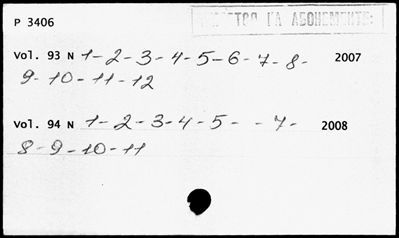 P 3406
Vol. 93 N 1-2-3-4-5-6-7-8- 2007
9-10-11-12
Vol. 94 N 1-2-3-4-5- -7- 2008
8-9-10-11